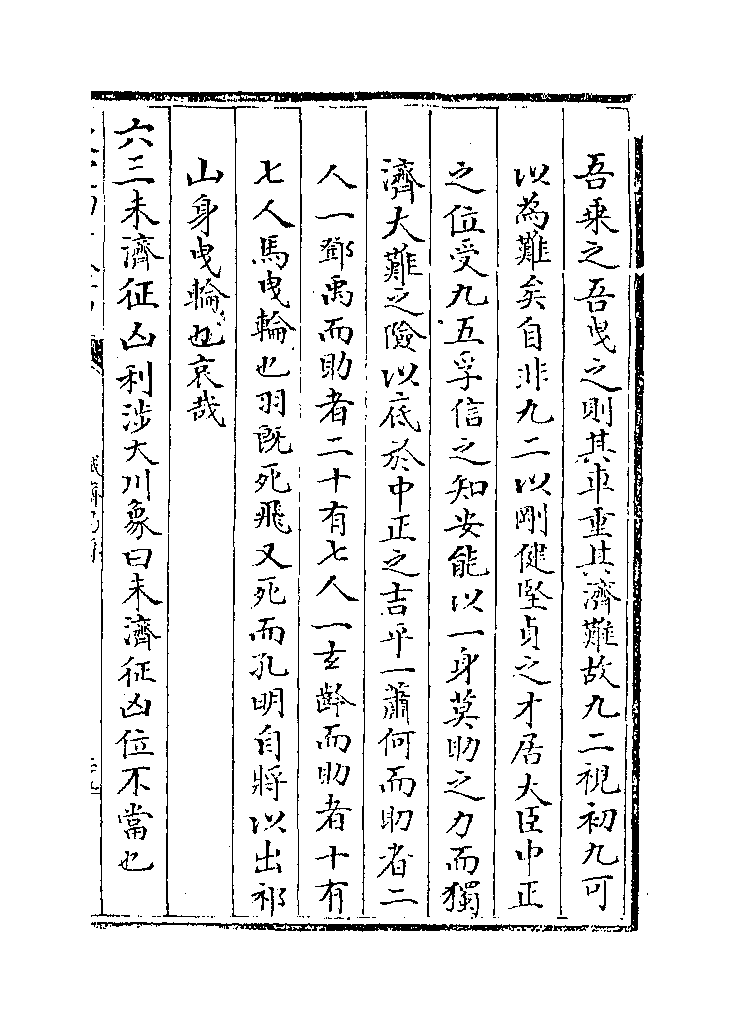 吾乗之吾曳之則其車重其濟難故九二視初九可
以為難矣自非九二以剛健堅貞之才居大臣中正
之位受九五孚信之知安能以一身莫助之力而獨
濟大難之險以底於中正之吉乎一蕭何而助者二
人一鄧禹而助者二十有七人一玄齡而助者十有
七人馬曳輪也羽既死飛又死而孔明自將以出祁
山身曳輪也哀哉
六三未濟征凶利涉大川象曰未濟征凶位不當也